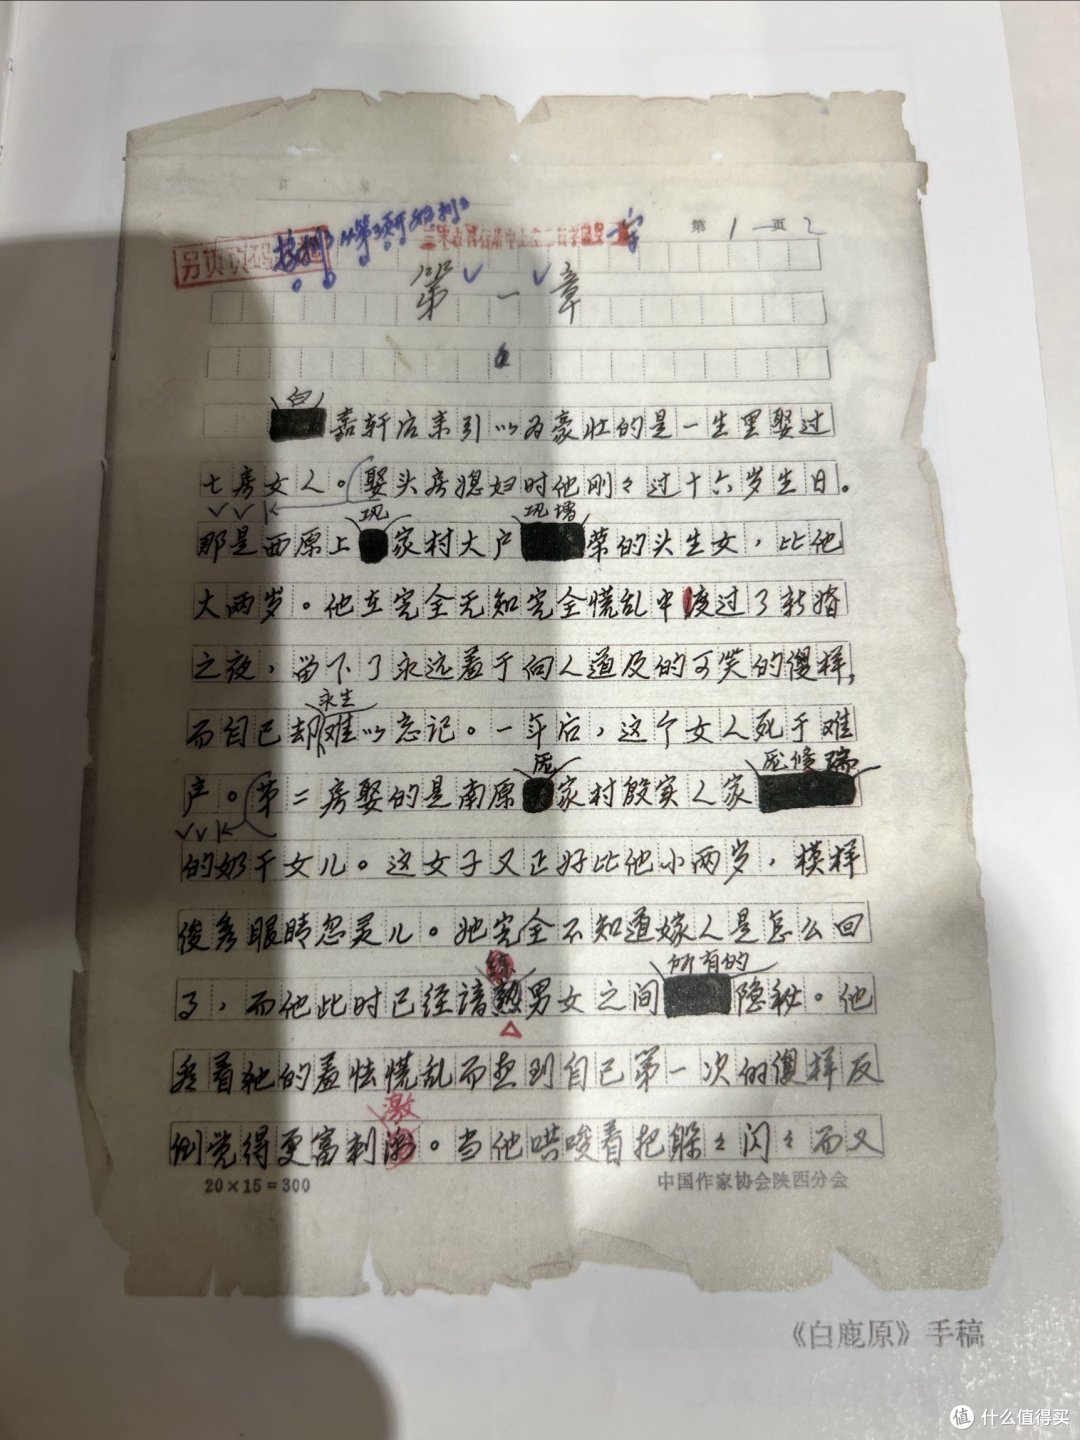 第1页 2
另线页码
接排
第一章
白
嘉轩后来引以为豪壮的是一生里娶过
七房女人。娶头房媳妇时他刚々过十六岁生日。
巩 巩增
那是西原上家村大户荣的头生女，比他
大两岁。他在完全无知完全慌乱中度过了新婚
之夜，留下了永远羞于向人道及的可笑的傻样，
永生
而自己却难以忘记。一年后，这个女人死于难
庞 庞修瑞
产。第二房娶的是南原家村殷实人家
的奶干女儿。这女子又正好比他小两岁，模样
俊秀眼睛忽灵儿。她完全不知道嫁人是怎么回
所有的
了，而他此时已经谙熟男女之间隐秘。他
看着她的羞怯慌乱而想到自己第一次的傻样反
激
倒觉得更富刺。当他哄唆着把躲々闪々而又
20×15=300
中国作家协会陕西分会
《白鹿原》手稿
值 什么值得买